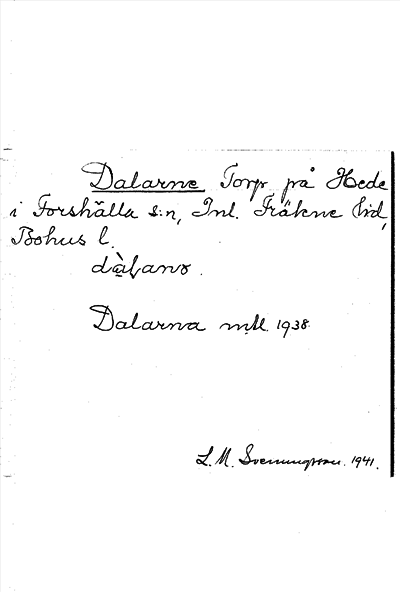 Dalarne Torp på Hede
i Forshälla s:n, Inl. Fräkne hd,
Bohus l.
Dalarna mtl. 1938.
L. M. Svenungsson. 1941.